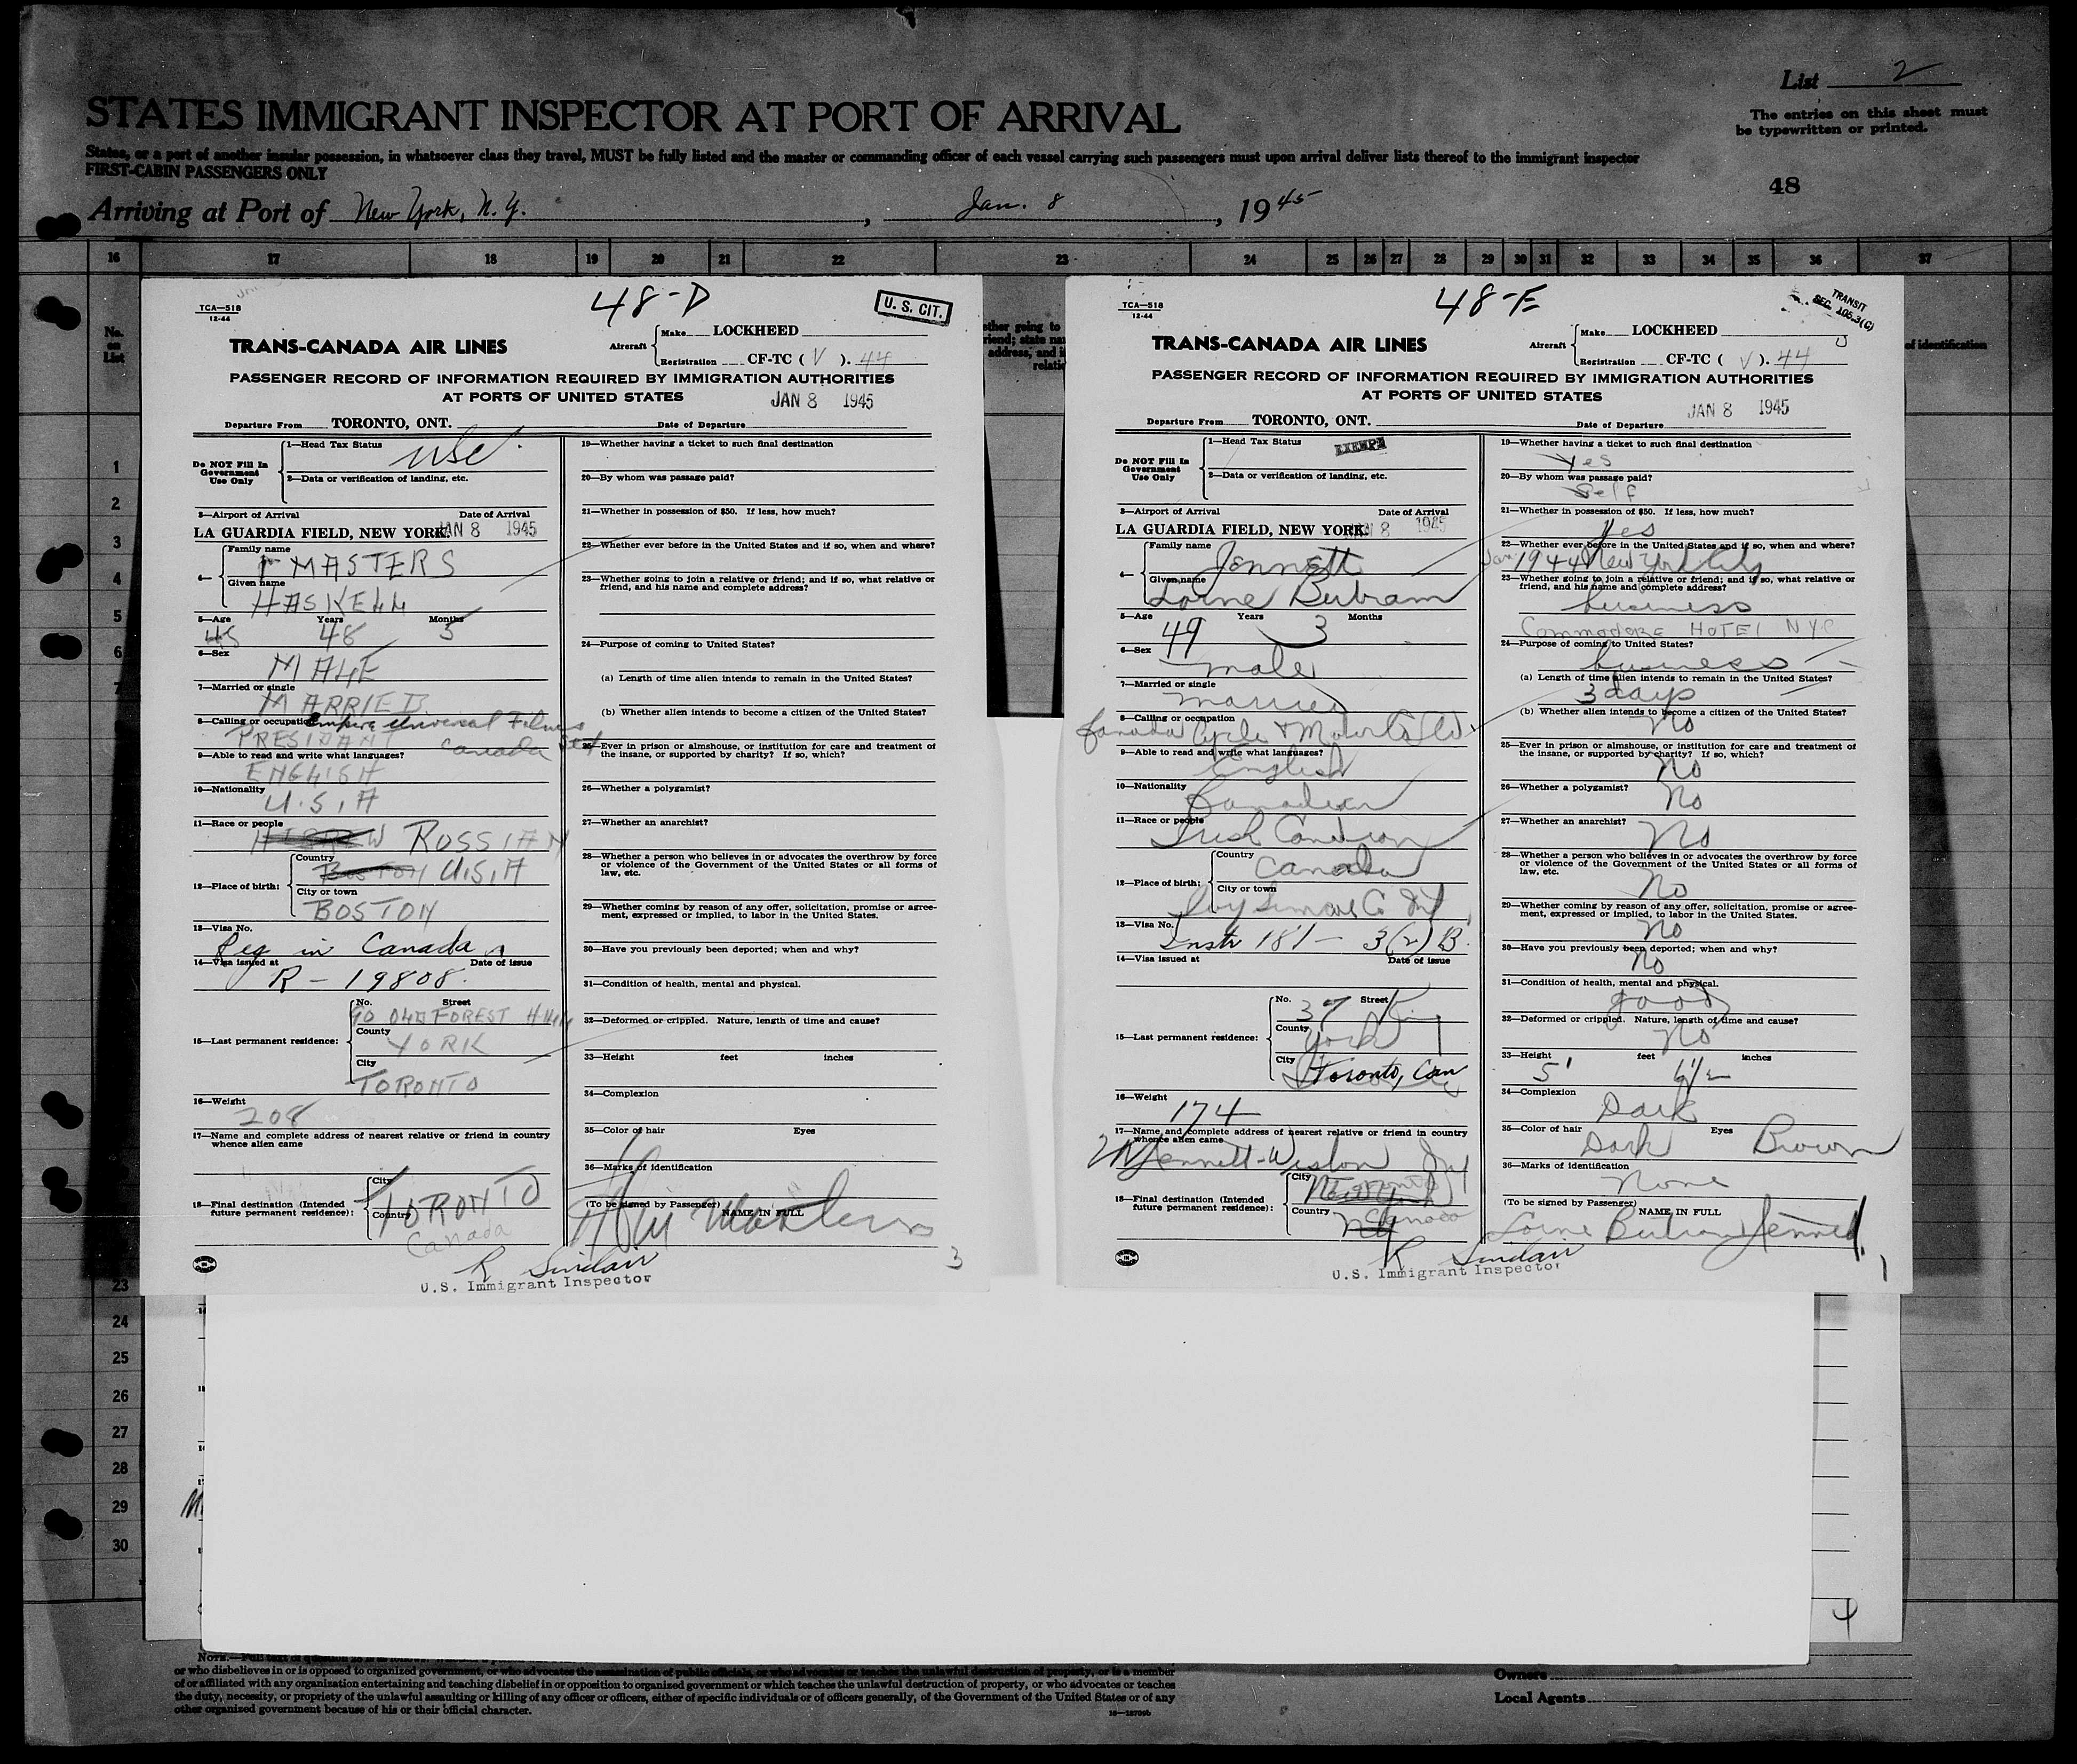 List 2
STATES IMMIGRANT INSPECTOR AT PORT OF ARRIVAL
The entries on this sheet must
be typewritten or printed.
States, or a port of another insular possession, in whatsoever class they travel, MUST be fully listed and the master or commanding officer of each vessel carrying such passengers must upon arrival deliver lists thereof to the immigrant inspector
FIRST-CABIN PASSENGERS ONLY
48
Arriving at Port of New York, N.Y. , Jan. 8 , 1945
16 17 18 19 20 21 22 23 24 25 26 27 28 29 30 31 32 33 34 35 36 37
No.
on
List
1
2
3
4
5
6
7
TCA—518
12-44
48-D
U. S. CIT.
TRANS-CANADA AIR LINES
Aircraft
Make LOCKHEED
Registration CF-TC ( V ). 44
PASSENGER RECORD OF INFORMATION REQUIRED BY IMMIGRATION AUTHORITIES
AT PORTS OF UNITED STATES JAN 8 1945
Departure From TORONTO, ONT. Date of Departure
Do NOT Fill In
Government
Use Only
1—Head Tax Status usc.
2—Data or verification of landing, etc.
3—Airport of Arrival Date of Arrival
LA GUARDIA FIELD, NEW YORK JAN 8 1945
4— Family name MASTERS
Given name HASKELL
5—Age Years Months
48 5
6—Sex
MALE
7—Married or single
MARRIED
8—Calling or occupation Empire Universal Films
PRESIDANT Canada
9—Able to read and write what languages?
ENGLISH
10—Nationality
U.S.A
11—Race or people
ROSSIAN
12—Place of birth: Country
BOSTON U.S.A
City or town
BOSTON
13—Visa No.
Reg in Canada
14—Visa issued at Date of issue
R - 19808.
15—Last permanent residence: No. Street
OLD FOREST HILL
County
YORK
City
TORONTO
16—Weight
208
17—Name and complete address of nearest relative or friend in country
whence alien came
18—Final destination (Intended
future permanent residence):
City
Country
TORONTO
Canada
19—Whether having a ticket to such final destination
20—By whom was passage paid?
21—Whether in possession of $50. If less, how much?
22—Whether ever before in the United States and if so, when and where?
23—Whether going to join a relative or friend; and if so, what relative or
friend, and his name and complete address?
24—Purpose of coming to United States?
(a) Length of time alien intends to remain in the United States?
(b) Whether alien intends to become a citizen of the United States?
25—Ever in prison or almshouse, or institution for care and treatment of
the insane, or supported by charity? If so, which?
26—Whether a polygamist?
27—Whether an anarchist?
28—Whether a person who believes in or advocates the overthrow by force
or violence of the Government of the United States or all forms of
law, etc.
29—Whether coming by reason of any offer, solicitation, promise or agree-
ment, expressed or implied, to labor in the United States.
30—Have you previously been deported; when and why?
31—Condition of health, mental and physical.
32—Deformed or crippled. Nature, length of time and cause?
33—Height feet inches
34—Complexion
35—Color of hair Eyes
36—Marks of identification
(To be signed by Passenger) NAME IN FULL
Masters
R Sinclair
U.S. Immigrant Inspector
3
TCA—518
12-44
48-E
TRANSIT
SEC. 105.3(C)
TRANS-CANADA AIR LINES
Aircraft
Make LOCKHEED
Registration CF-TC ( V ). 44
PASSENGER RECORD OF INFORMATION REQUIRED BY IMMIGRATION AUTHORITIES
AT PORTS OF UNITED STATES
JAN 8 1945
Departure From TORONTO, ONT. Date of Departure
Do NOT Fill In
Government
Use Only
1—Head Tax Status EXEMPT
2—Data or verification of landing, etc.
3—Airport of Arrival Date of Arrival
LA GUARDIA FIELD, NEW YORK JAN 8 1945
4— Family name Jennett
Given name Lorne Bertram
5—Age Years Months
49 3
6—Sex
male
7—Married or single
married
8—Calling or occupation
Canada Cycle & Motor Co Ltd
9—Able to read and write what languages?
English
10—Nationality
Canadian
11—Race or people
Irish Canadian
12—Place of birth: Country
Canada
City or town
Simcoe Co
13—Visa No.
Instr 181 - 3(2) B.
14—Visa issued at Date of issue
15—Last permanent residence: No. Street
37 King
County
York
City
Toronto, Can
16—Weight
174
17—Name and complete address of nearest relative or friend in country
whence alien came
Jennett-Weston
18—Final destination (Intended
future permanent residence):
City
New York Toronto
Country
NY Canada
19—Whether having a ticket to such final destination
Yes
20—By whom was passage paid?
Self
21—Whether in possession of $50. If less, how much?
Yes
22—Whether ever before in the United States and if so, when and where?
Jan 1944 New York City
23—Whether going to join a relative or friend; and if so, what relative or
friend, and his name and complete address?
business
COMMODORE HOTEL NYC
24—Purpose of coming to United States?
business
(a) Length of time alien intends to remain in the United States?
3 days
(b) Whether alien intends to become a citizen of the United States?
No
25—Ever in prison or almshouse, or institution for care and treatment of
the insane, or supported by charity? If so, which?
No
26—Whether a polygamist?
No
27—Whether an anarchist?
No
28—Whether a person who believes in or advocates the overthrow by force
or violence of the Government of the United States or all forms of
law, etc.
No
29—Whether coming by reason of any offer, solicitation, promise or agree-
ment, expressed or implied, to labor in the United States.
No
30—Have you previously been deported; when and why?
No
31—Condition of health, mental and physical.
good
32—Deformed or crippled. Nature, length of time and cause?
No
33—Height feet inches
5' 6 1/2
34—Complexion
Dark
35—Color of hair Eyes
Dark Brown
36—Marks of identification
None
(To be signed by Passenger) NAME IN FULL
Lorne Bertram Jennett
R Sinclair
U.S. Immigrant Inspector
1
of identification
23
24
25
26
27
28
29
30
4
NOTE.—Full text of question
or who disbelieves in or is opposed to organized government, or who advocates the assassination of public officials, or who advocates or teaches the unlawful destruction of property, or is a member
of or affiliated with any organization entertaining and teaching disbelief in or opposition to organized government or which teaches the unlawful destruction of property, or who advocates or teaches
the duty, necessity, or propriety of the unlawful assaulting or killing of any officer or officers, either of specific individuals or of officers generally, of the Government of the United States or of any
other organized government because of his or their official character.
Owners
Local Agents